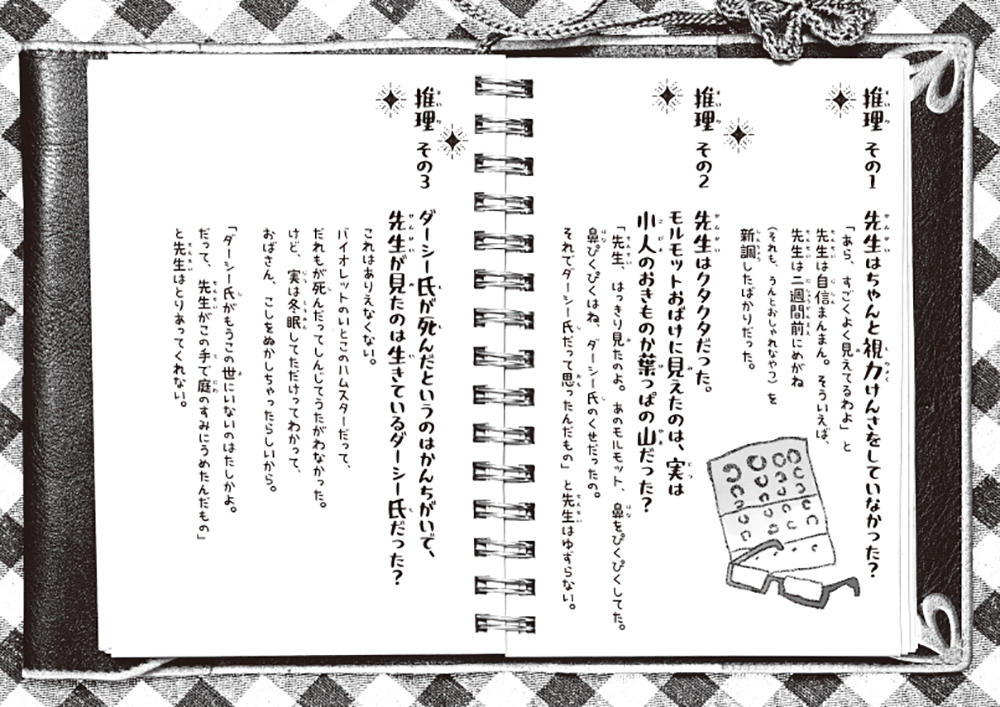 推理 その1
先生はちゃんと視力けんさをしていなかった?
「あら、すごくよく見えてるわよ」と
先生は自信まんまん。そういえば、
先生は二週間前にめがね
(それも、うんとおしゃれなやつ)を
新調したばかりだった。
推理 その2
先生はクタクタだった。
モルモットおばけに見えたのは、実は
小人のおきものか葉っぱの山だった?
「先生、はっきり見たのよ。あのモルモット、鼻をぴくぴくしてた。
鼻ぴくぴくはね、ダーシー氏のくせだったの。
それでダーシー氏だって思ったんだもの」と先生はゆずらない。
推理 その3
ダーシー氏が死んだというのはかんちがいで、
先生が見たのは生きているダーシー氏だった?
これはありえなくない。
バイオレットのいとこのハムスターだって、
だれもが死んだってしんじてうたがわなかった。
けど、実は冬眠してただけってわかって、
おばさん、こしをぬかしちゃったらしいから。
「ダーシー氏がもうこの世にいないのはたしかよ。
だって、先生がこの手で庭のすみにうめたんだもの」
と先生はとりあってくれない。